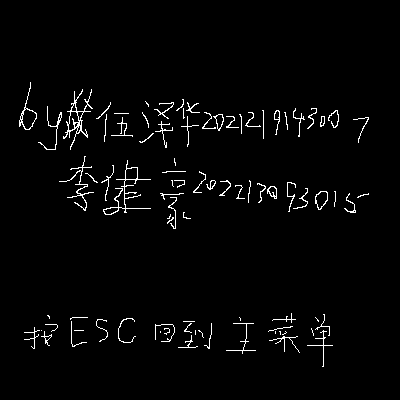 by 伍泽华2021219143007
李健豪202213093015
按ESC回到主菜单